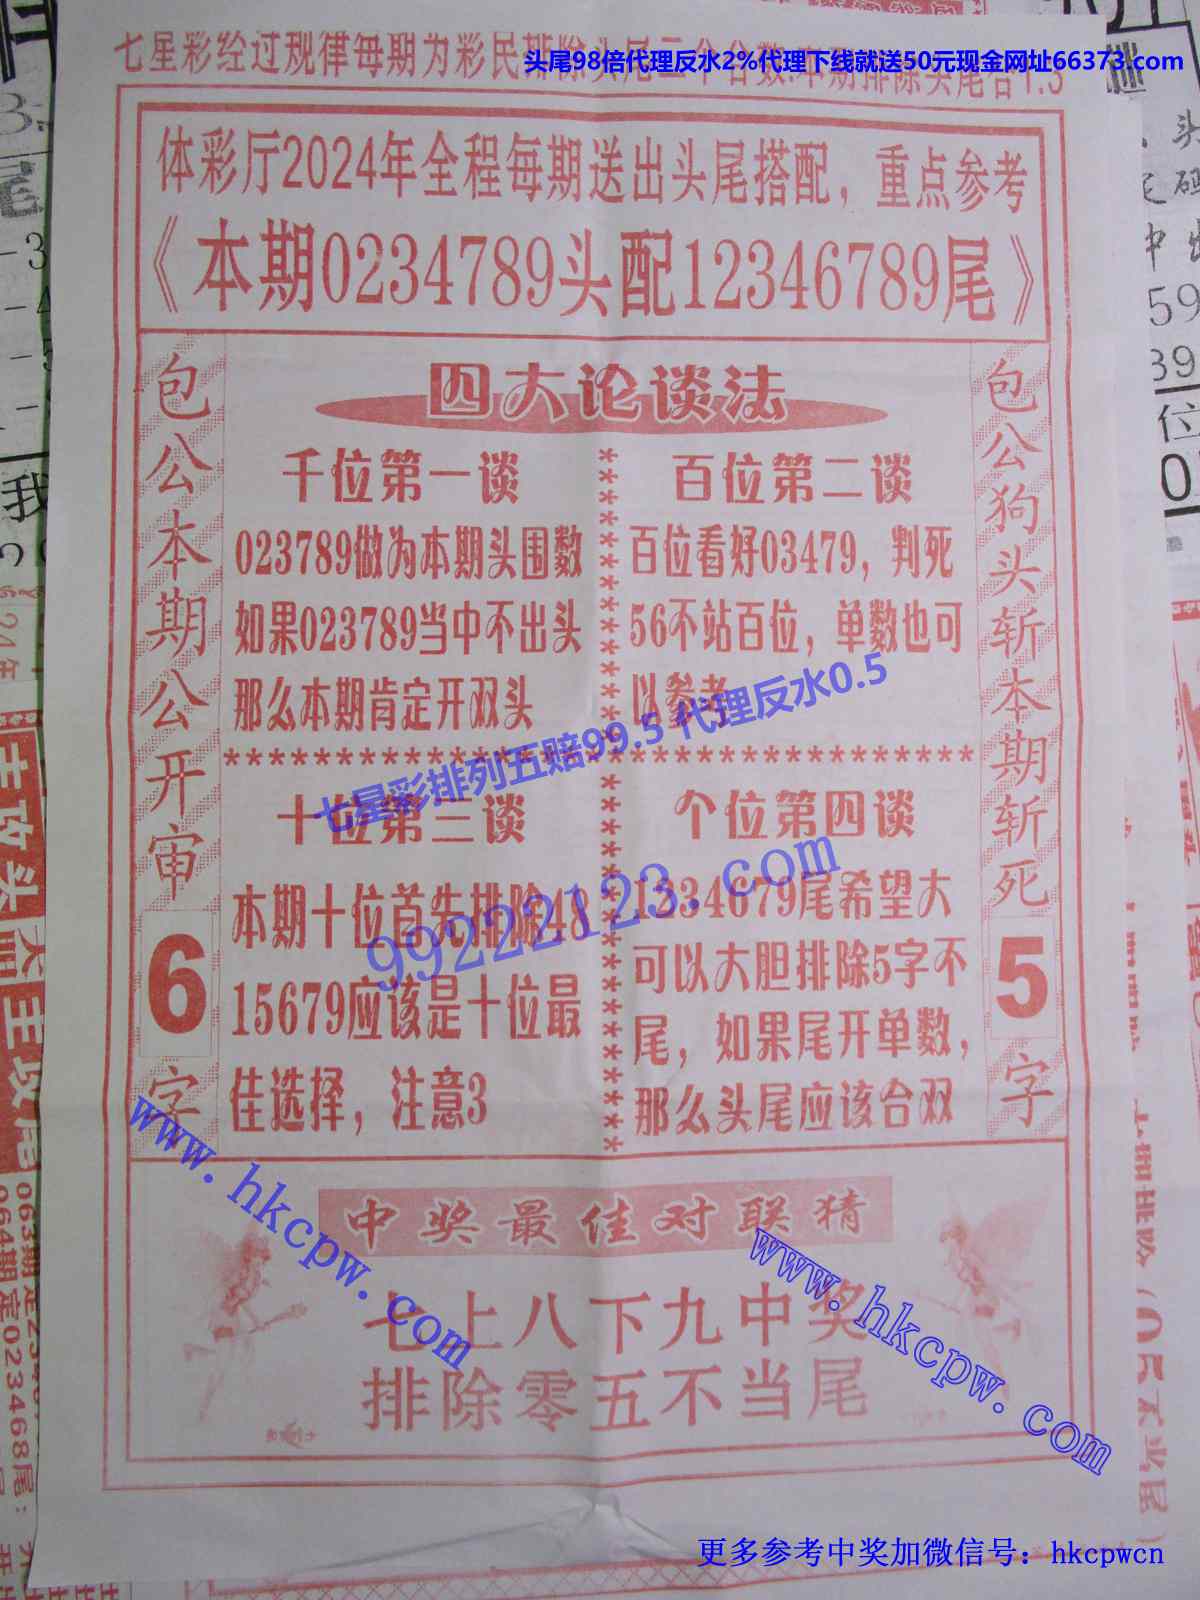 头尾98倍代理反水2%代理下线就送50元现金网址66373.com
七星彩经过规律每期为彩民排除头尾二个合数.本期排除头尾合1.5
体彩厅2024年全程每期送出头尾搭配，重点参考
《本期0234789头配12346789尾》
四大论谈法
包公本期公开审6字
千位第一谈
023789做为本期头围数
如果023789当中不出头
那么本期肯定开双头
百位第二谈
百位看好03479，判死
56不站百位，单数也可
以参考
包公狗头斩本期斩死5字
七星彩排列五赔99.5 代理反水0.5
99222123.com
十位第三谈
本期十位首先排除48
15679应该是十位最
佳选择，注意3
个位第四谈
1334679尾希望大
可以大胆排除5字不
尾，如果尾开单数，
那么头尾应该合双
www.hkcpw.com
www.hkcpw.com
中奖最佳对联猜
七上八下九中奖
排除零五不当尾
更多参考中奖加微信号：hkcpwcn